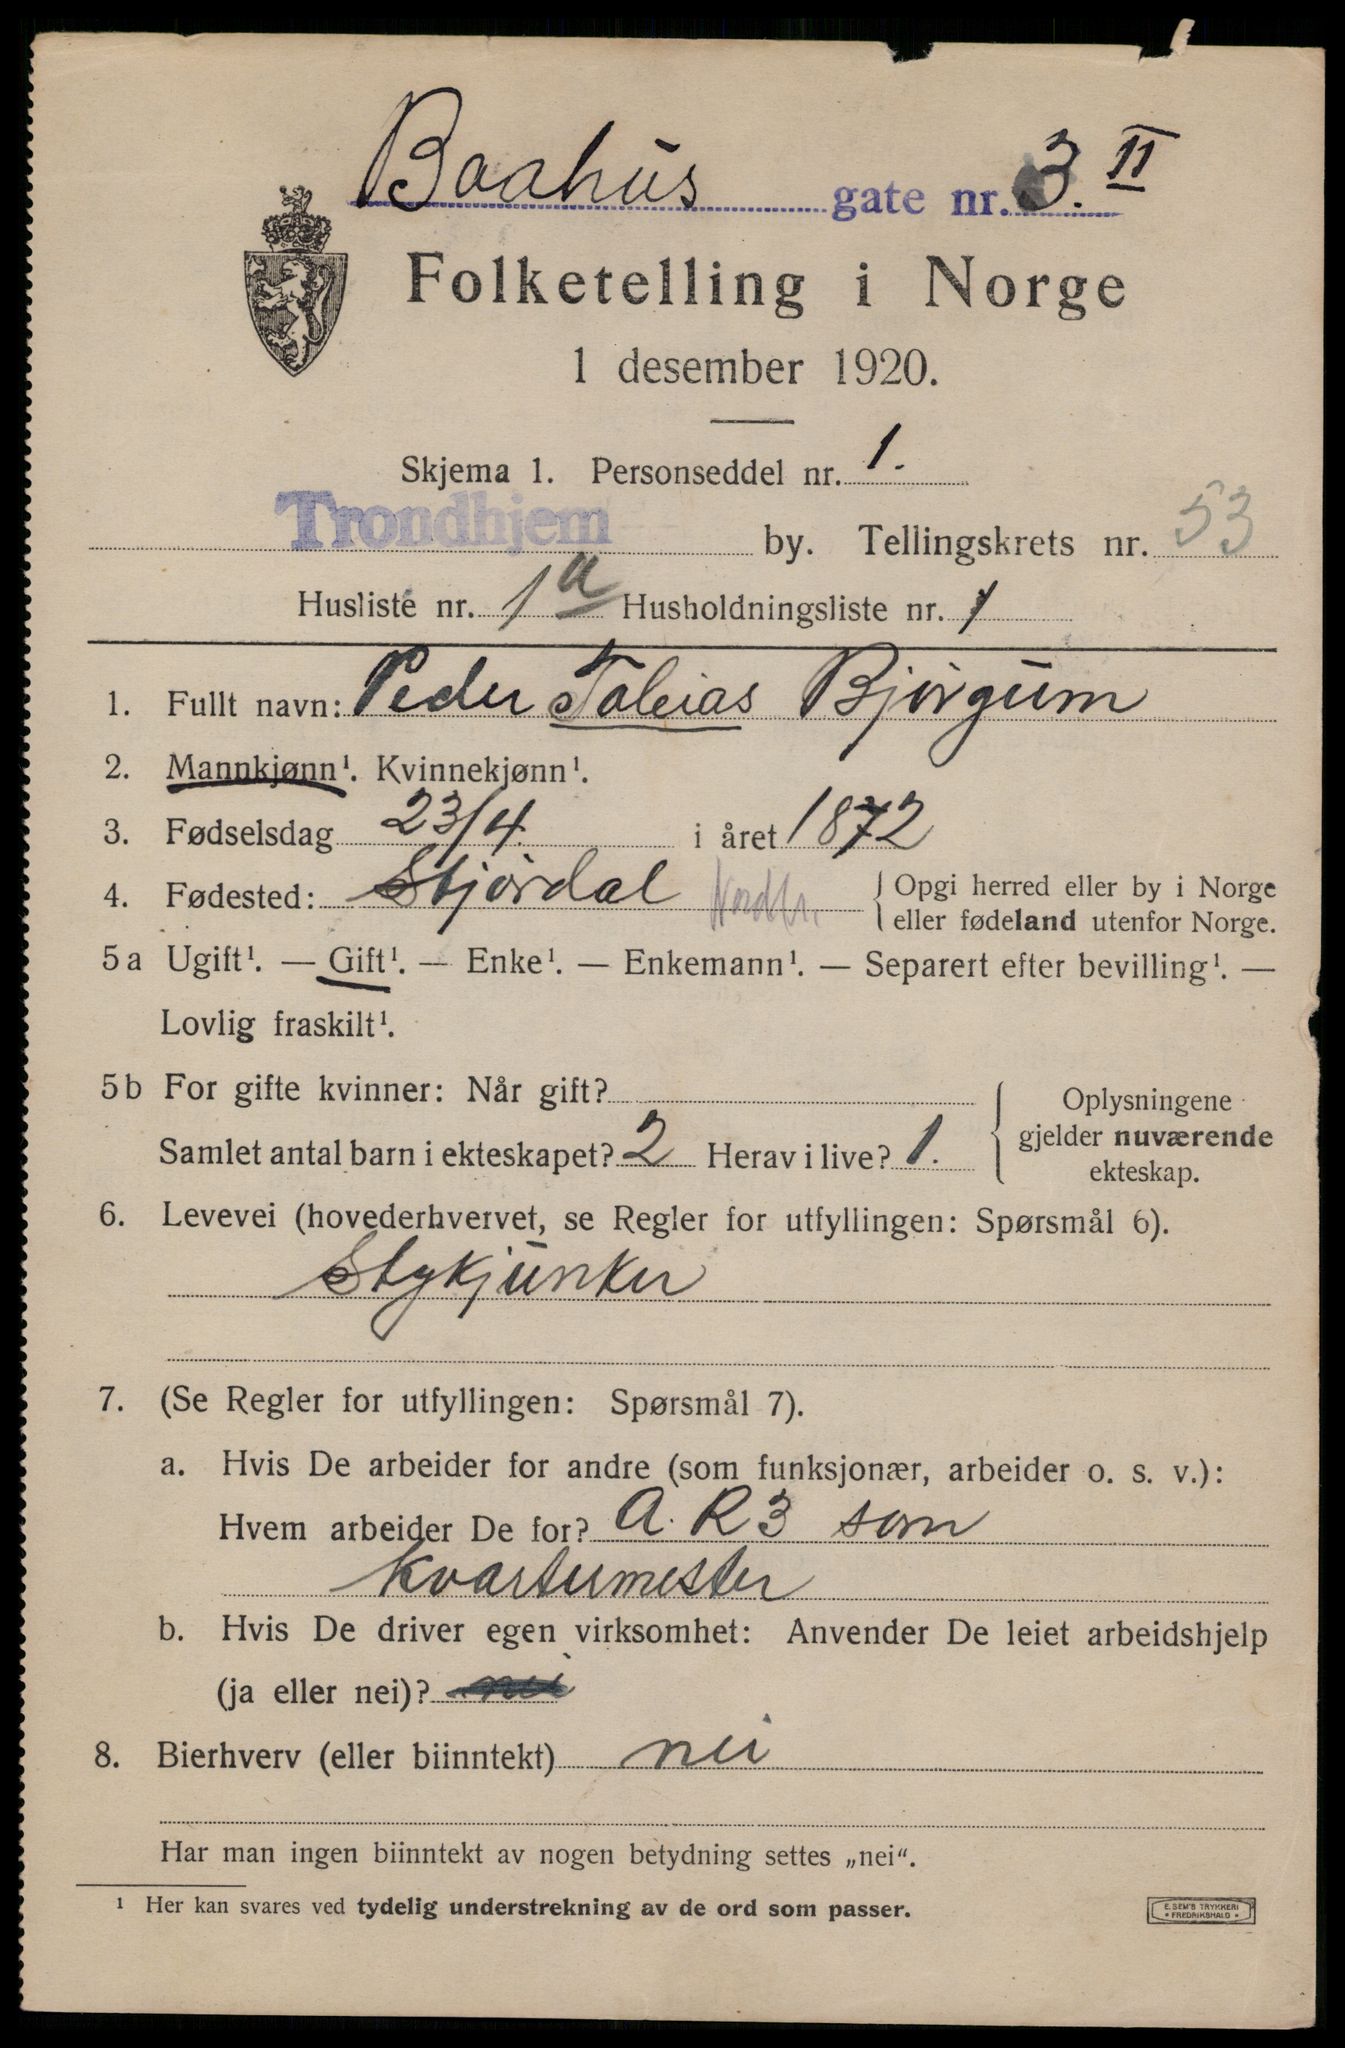 Baahus gate nr. 3. II
Folketelling i Norge
1 desember 1920.
Skjema 1. Personseddel nr. 1.
Trondhjem by. Tellingskrets nr. 53
Husliste nr. 1 a Husholdningsliste nr. 1
1. Fullt navn: Peder Tobias Bjørgum
2. Mannkjønn¹. Kvinnekjønn¹.
3. Fødselsdag 23/4. i året 1872
4. Fødested: Stjørdal Nordtr. { Opgi herred eller by i Norge
eller fødeland utenfor Norge.
5a Ugift¹. — Gift¹. — Enke¹. — Enkemann¹. — Separert efter bevilling¹. —
Lovlig fraskilt¹.
5b For gifte kvinner: Når gift?
Samlet antal barn i ekteskapet? 2 Herav i live? 1.
Oplysningene
gjelder nuværende
ekteskap.
6. Levevei (hovederhvervet, se Regler for utfyllingen: Spørsmål 6).
Stykjunker
7. (Se Regler for utfyllingen: Spørsmål 7).
a. Hvis De arbeider for andre (som funksjonær, arbeider o. s. v.):
Hvem arbeider De for? A. R 3 som
kvartermester
b. Hvis De driver egen virksomhet: Anvender De leiet arbeidshjelp
(ja eller nei)? nei
8. Bierhverv (eller biinntekt) nei
Har man ingen biinntekt av nogen betydning settes „nei“.
¹ Her kan svares ved tydelig understrekning av de ord som passer.
E. SEM'S TRYKKERI
• FREDRIKSHALD •